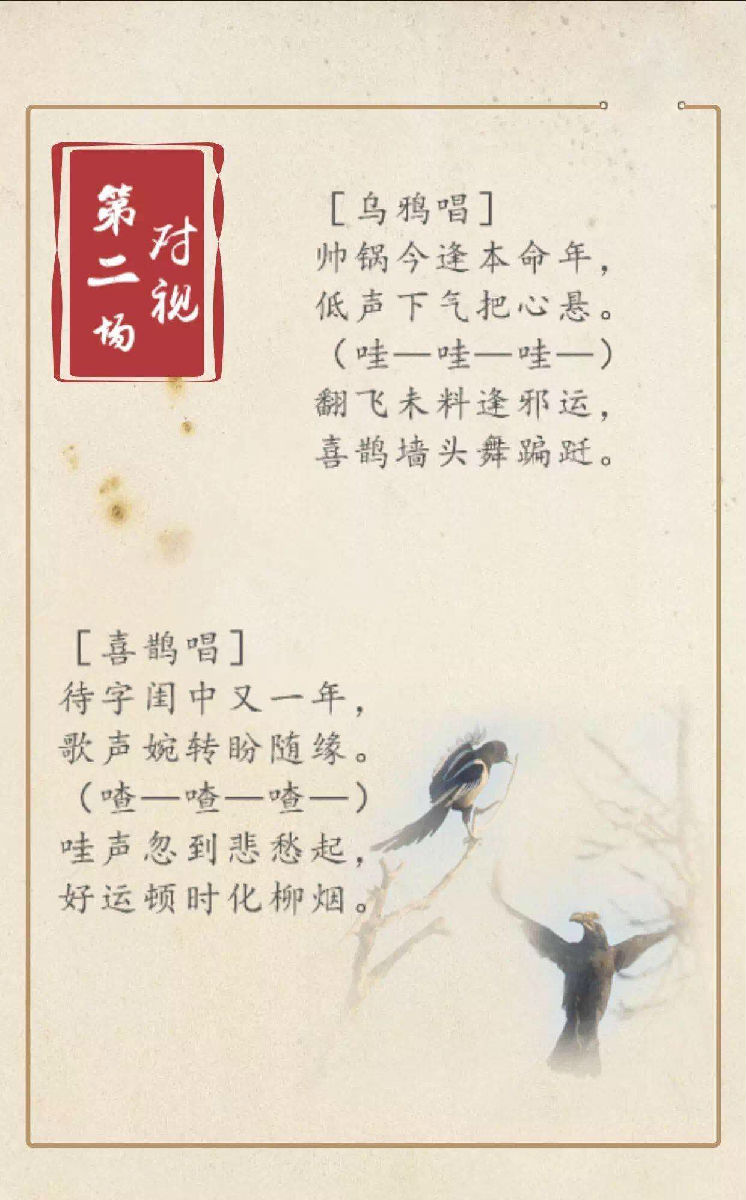 第二场
对视
［乌鸦唱］
帅锅今逢本命年，
低声下气把心悬。
（哇—哇—哇—）
翻飞未料逢邪运，
喜鹊墙头舞蹁跹。
［喜鹊唱］
待字闺中又一年，
歌声婉转盼随缘。
（喳—喳—喳—）
哇声忽到悲愁起，
好运顿时化柳烟。